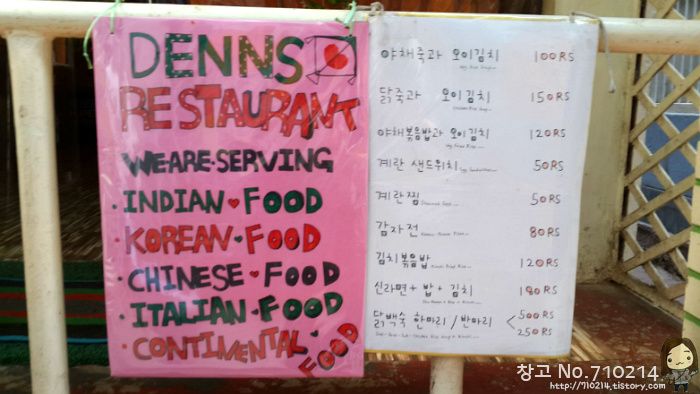 DENNS
RESTAURANT
WE·ARE·SERVING
·INDIAN♥FOOD
·KOREAN♥FOOD
·CHINESE♥FOOD
·ITALIAN·FOOD
·CONTIMENTAL FOOD
야채죽과 오이김치 100RS
닭죽과 오이김치 150RS
야채볶음밥과 오이김치 120RS
Veg Fried Rice
계란 샌드위치 50RS
계란찜 50RS
감자전 80RS
김치볶음밥 120RS
Kimchi Fried Rice
신라면+밥+김치 180RS
닭백숙 한마리/반마리 < 500RS
250RS
창고 No.710214
http://710214.tistory.com